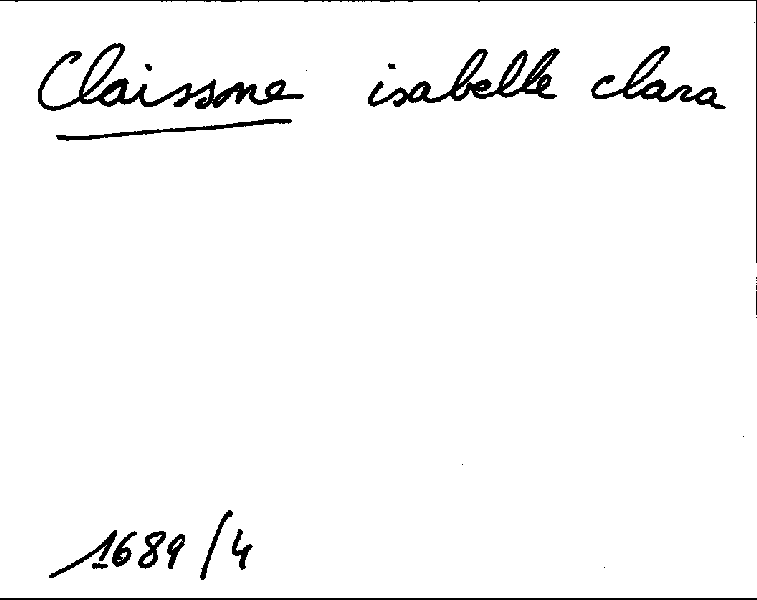 Claissone isabelle clara
1689/4